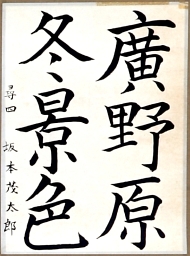 廣野原
冬景色
尋四 坂本茂太郎